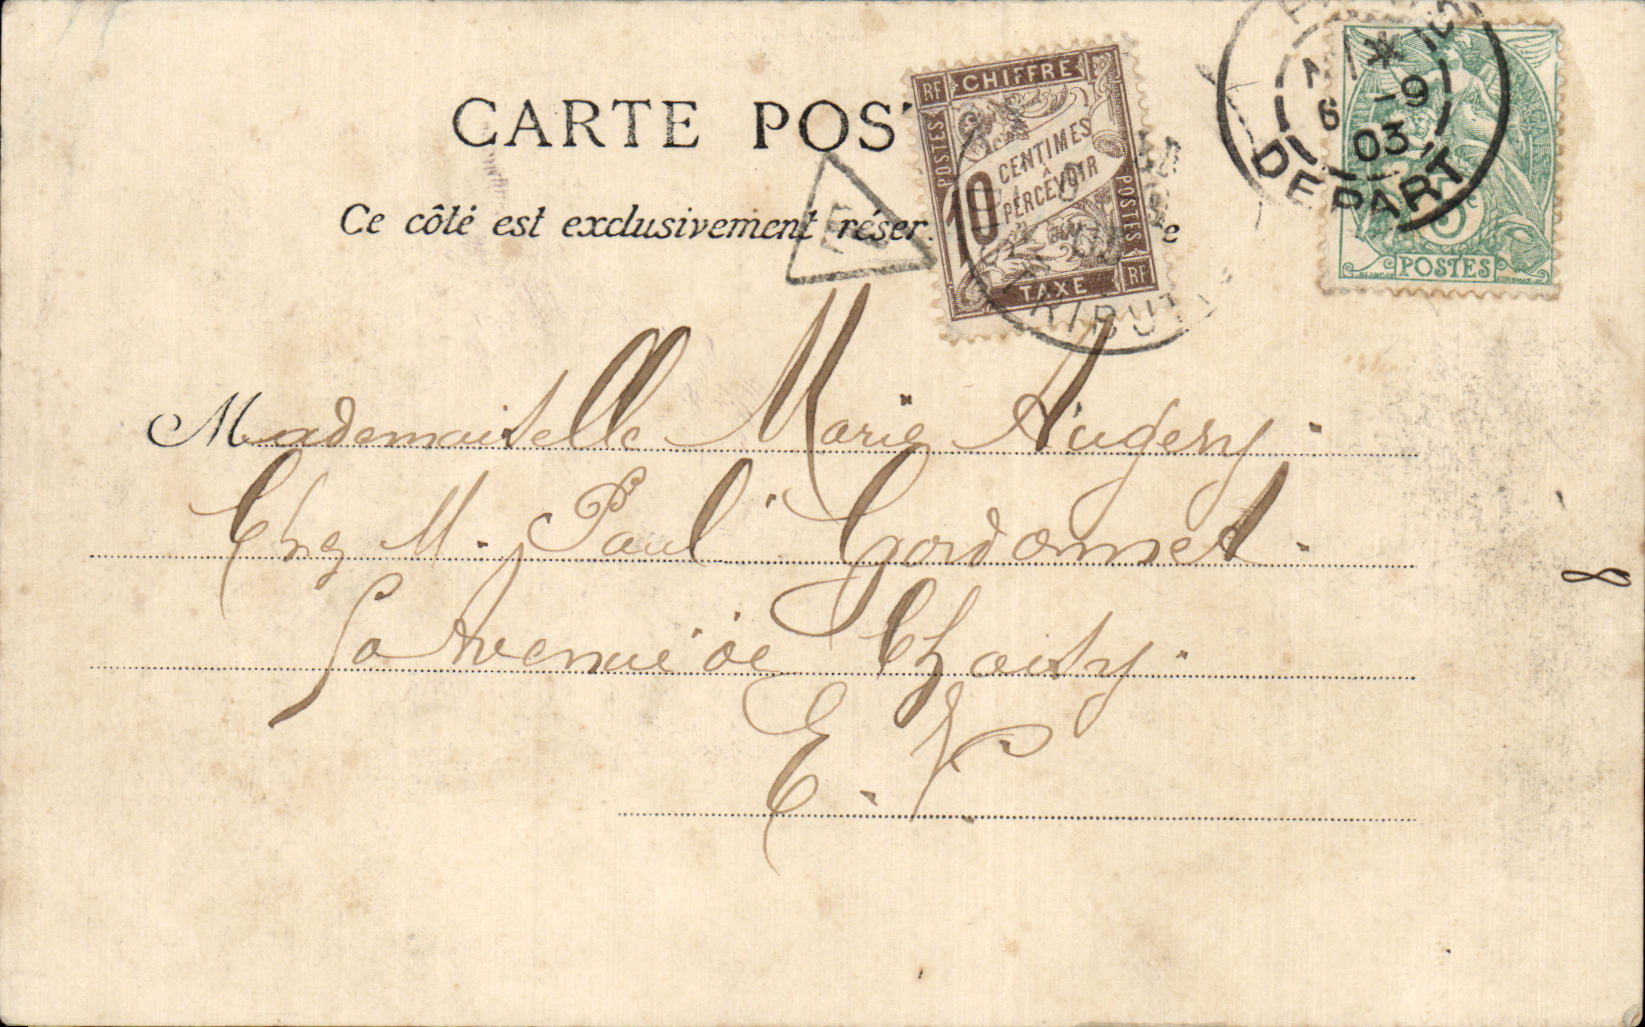 CARTE POS
Ce côté est exclusivement réser. e
RF CHIFFRE
POSTES
10 CENTIMES
À
PERCEVOIR
POSTES
TAXE RF
-9
6
03
DEPART
5c
POSTES
Mademoiselle Marie Augery.
Chez M. Paul Gordonnet.
Avenue de Choisy.
E. V.
8